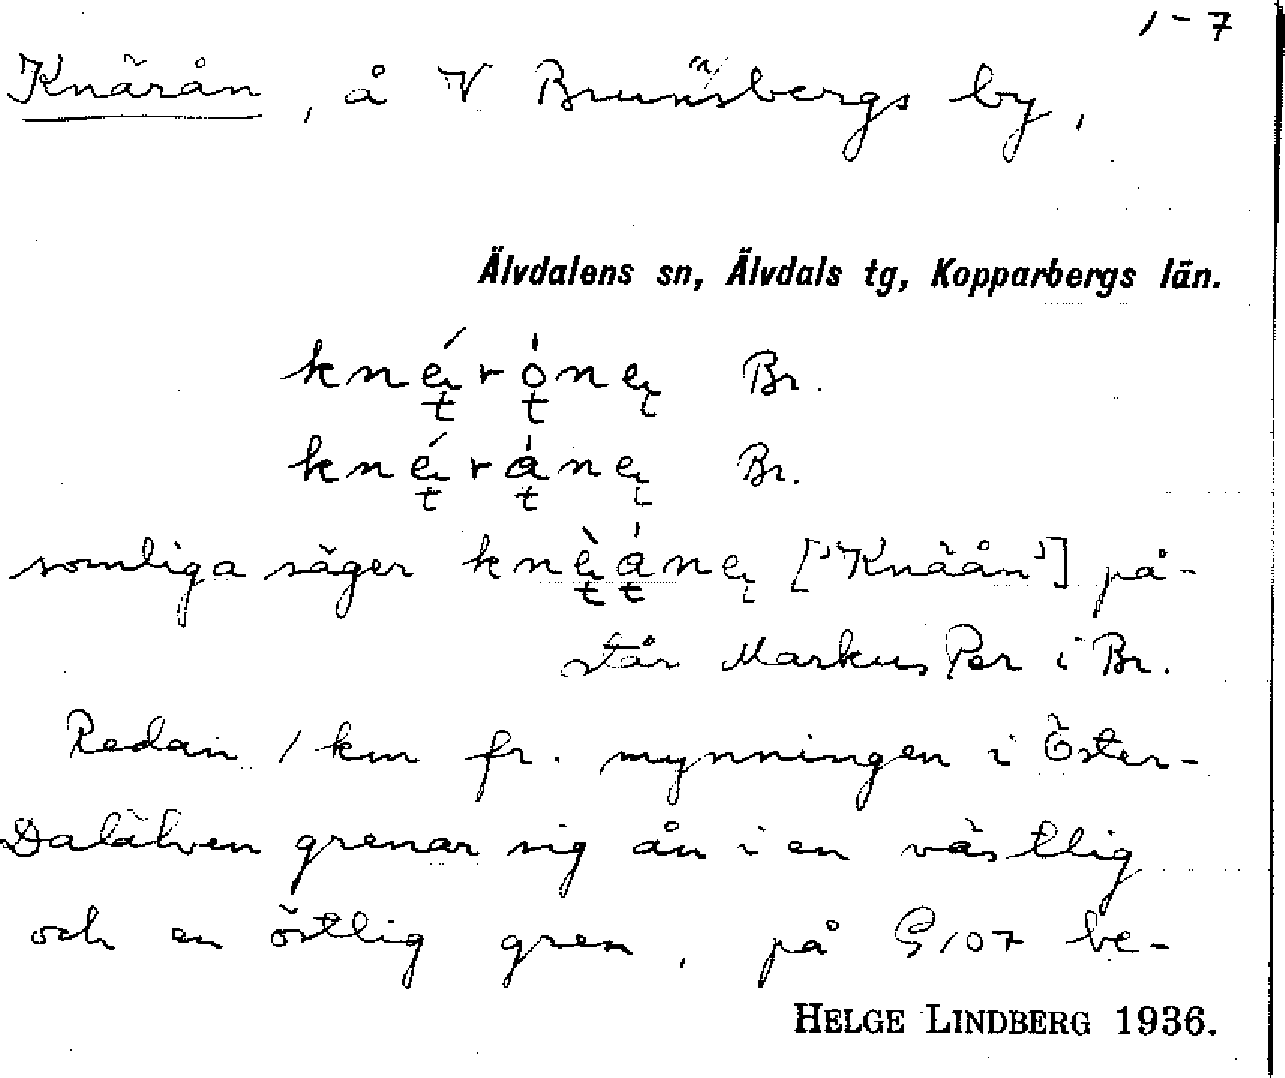 1-7
Knärån, å V Brunnsbergs by,
Älvdalens sn, Älvdals tg, Kopparbergs län.
knérónę Br.
knéránę Br.
somliga säger knèánę ['Knäån'] på-
står Markus Per i Br.
Redan 1 km fr. mynningen i Öster-
Dalälven grenar sig ån i en västlig
och en östlig gren, på G107 be-
HELGE LINDBERG 1936.